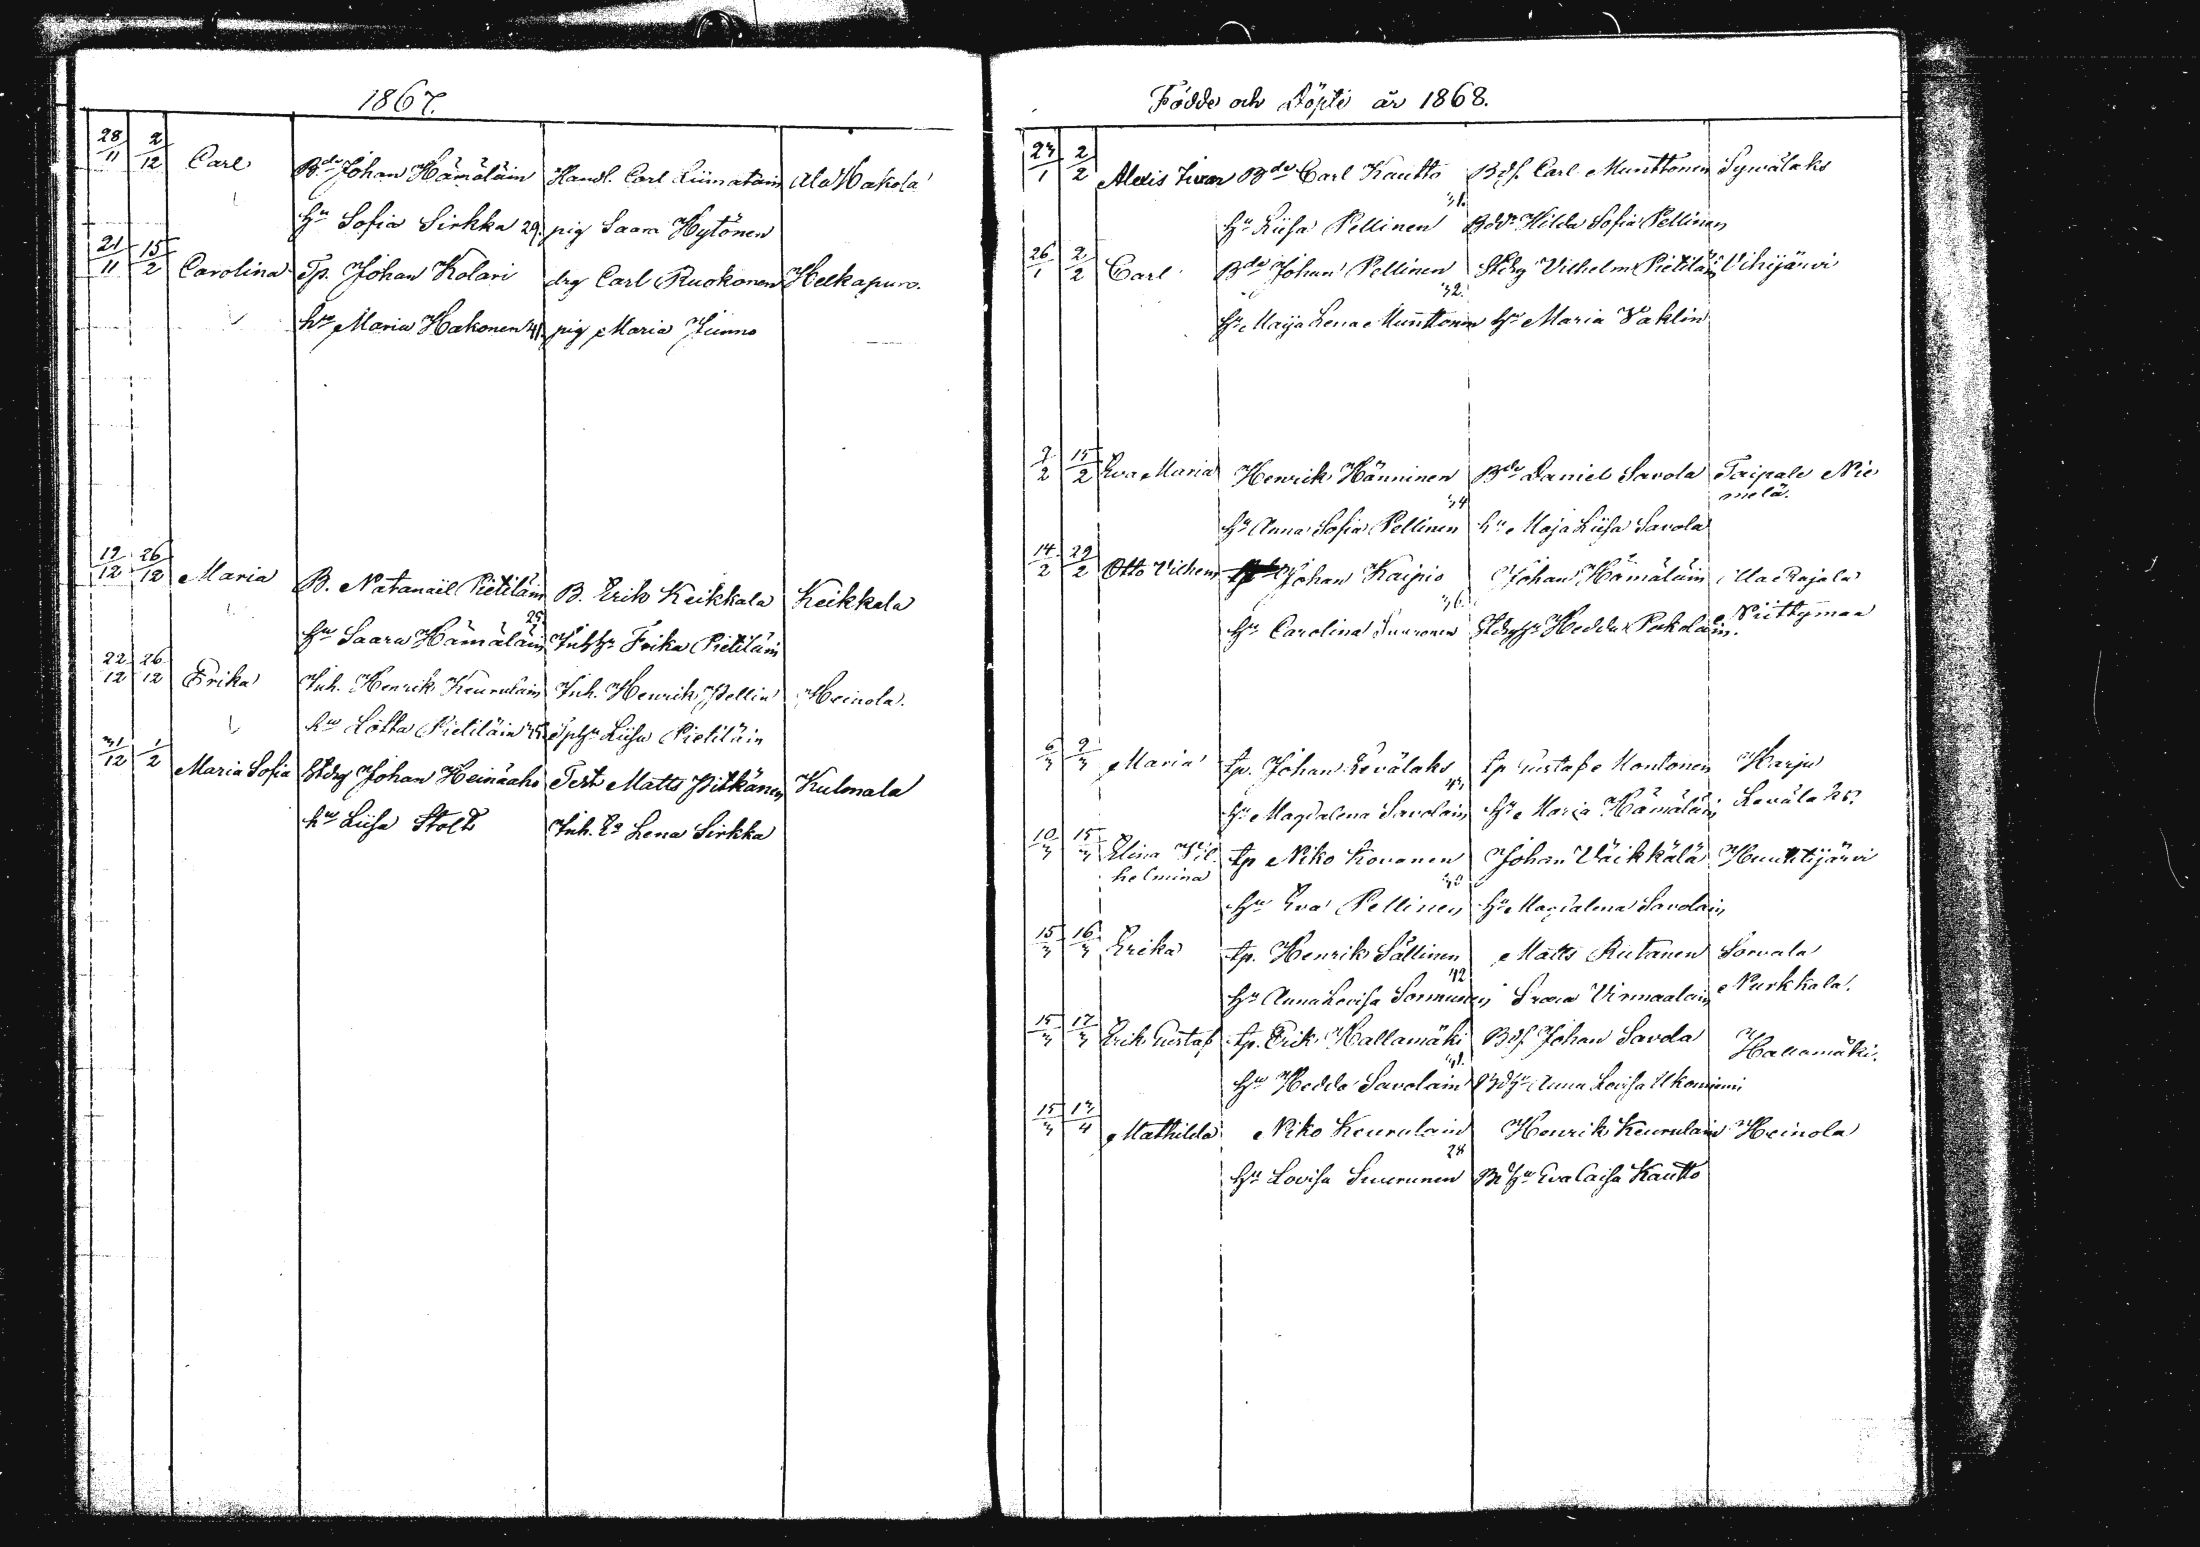 1867.
28/11 2/12 Carl Bde Johan Hämäläin Handl. Carl Liimatain Ala Hakola
hu Sofia Sirkka 29. pig Saara Hytönen
21/11 15/2 Carolina Tp. Johan Kolari drg Carl Ruokonen Helkapuro.
hu Maria Hakonen 41. pig Maria Junno
19/12 26/12 Maria B. Natanaël Pietiläin B. Erik Keikkala Keikkala
25
hu Saara Hämäläin Inhhu Erika Pietiläin
22/12 26/12 Erika Inh. Henrik Keurulain Inh. Henrik Pellin Heinola.
hu Lotta Pietiläin 35. Tphu Liisa Pietiläin
31/12 1/2 Maria Sofia Stdrg Johan Heinäaho Test Matts Pitkänen Kulmala
hu Liisa Stolt Inh. Lena Sirkka
Födde och Döpte år 1868.
23/1 2/2 Alexis Bde Carl Kautto Bdf. Carl Munttonen Sywälaks
31.
hu Liisa Pellinen Bdr Hilda Sofia Pellinen
26/1 2/2 Carl Bde Johan Pellinen Stdrg Vilhelm Pietiläin Vihijärvi
32.
hu Maija Lena Munttonen hu Maria Vaklin
2/2 15/2 Eva Maria Henrik Hänninen Bde Daniel Savola Taipale Nie
melä.
34
hu Anna Sofia Pellinen hu Maja Liisa Savola
14/2 29/2 Otto Vilhem Johan Kaipio Johan Hämäläin Ala Rajala
36.
hu Carolina Suuronen Stdrghu Hedda Pokolain. Niittymaa
6/3 9/3 Maria tp. Johan Levälaks tp Gustaf Montonen Harju
43
hu Magdalena Savolain hu Maria Hämäläin Leväläks.
10/3 15/3 Elina Vil tp Niko Kovanen Johan Väikkälä Huuhtijärvi
helmina
30
hu Eva Pellinen hu Magdalena Savolain
15/3 16/3 Erika tp. Henrik Sällinen Matts Riitanen Sorvala
42
hu Anna Lovisa Sormunen Virmaalain Nurkkala.
15/3 17/3 Erik Gustaf tp. Erik Hallamäki Bdf. Johan Savola Hallamäki.
31.
hu Hedda Savolain Bdhu Anna Lovisa Ukonniemi
15/3 13/4 Mathilda Niko Keurulain Henrik Keurulain Heinola
28
hu Lovisa Suurunen Bdhu Eva Caisa Kautto